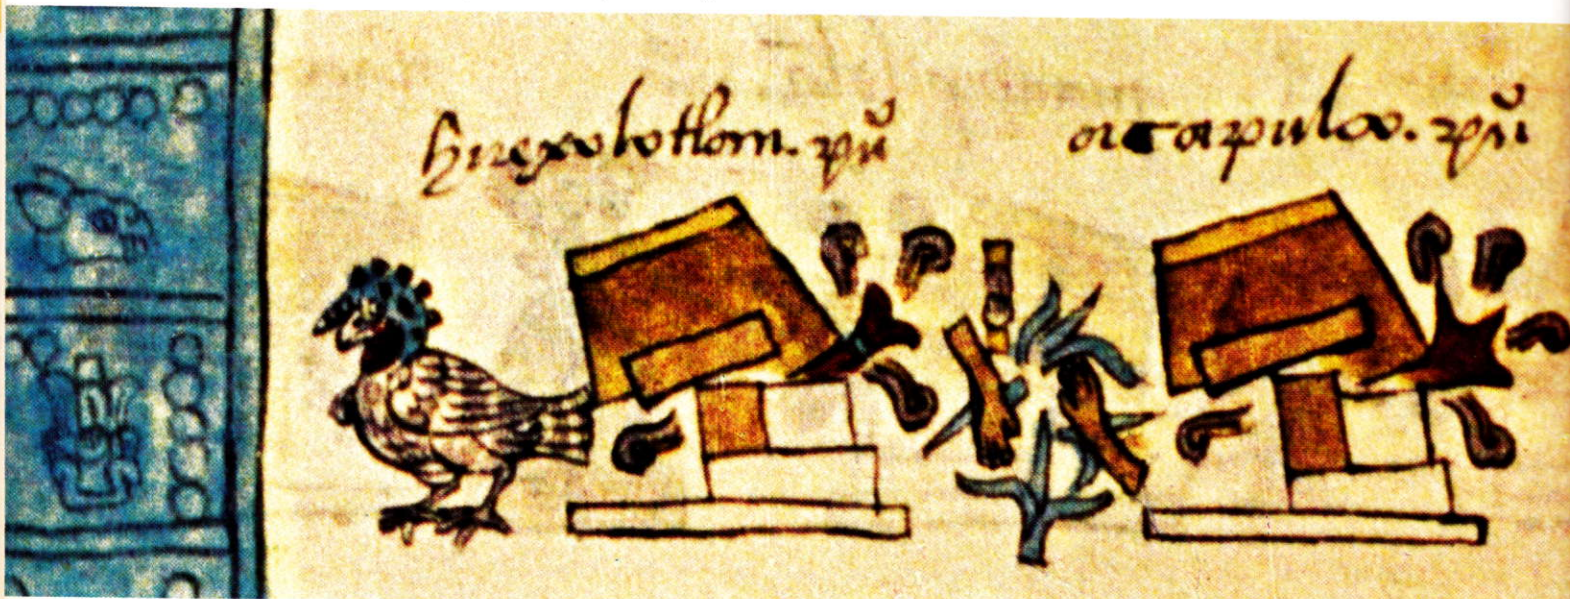 huexolotlan. puº
acapulco. puº